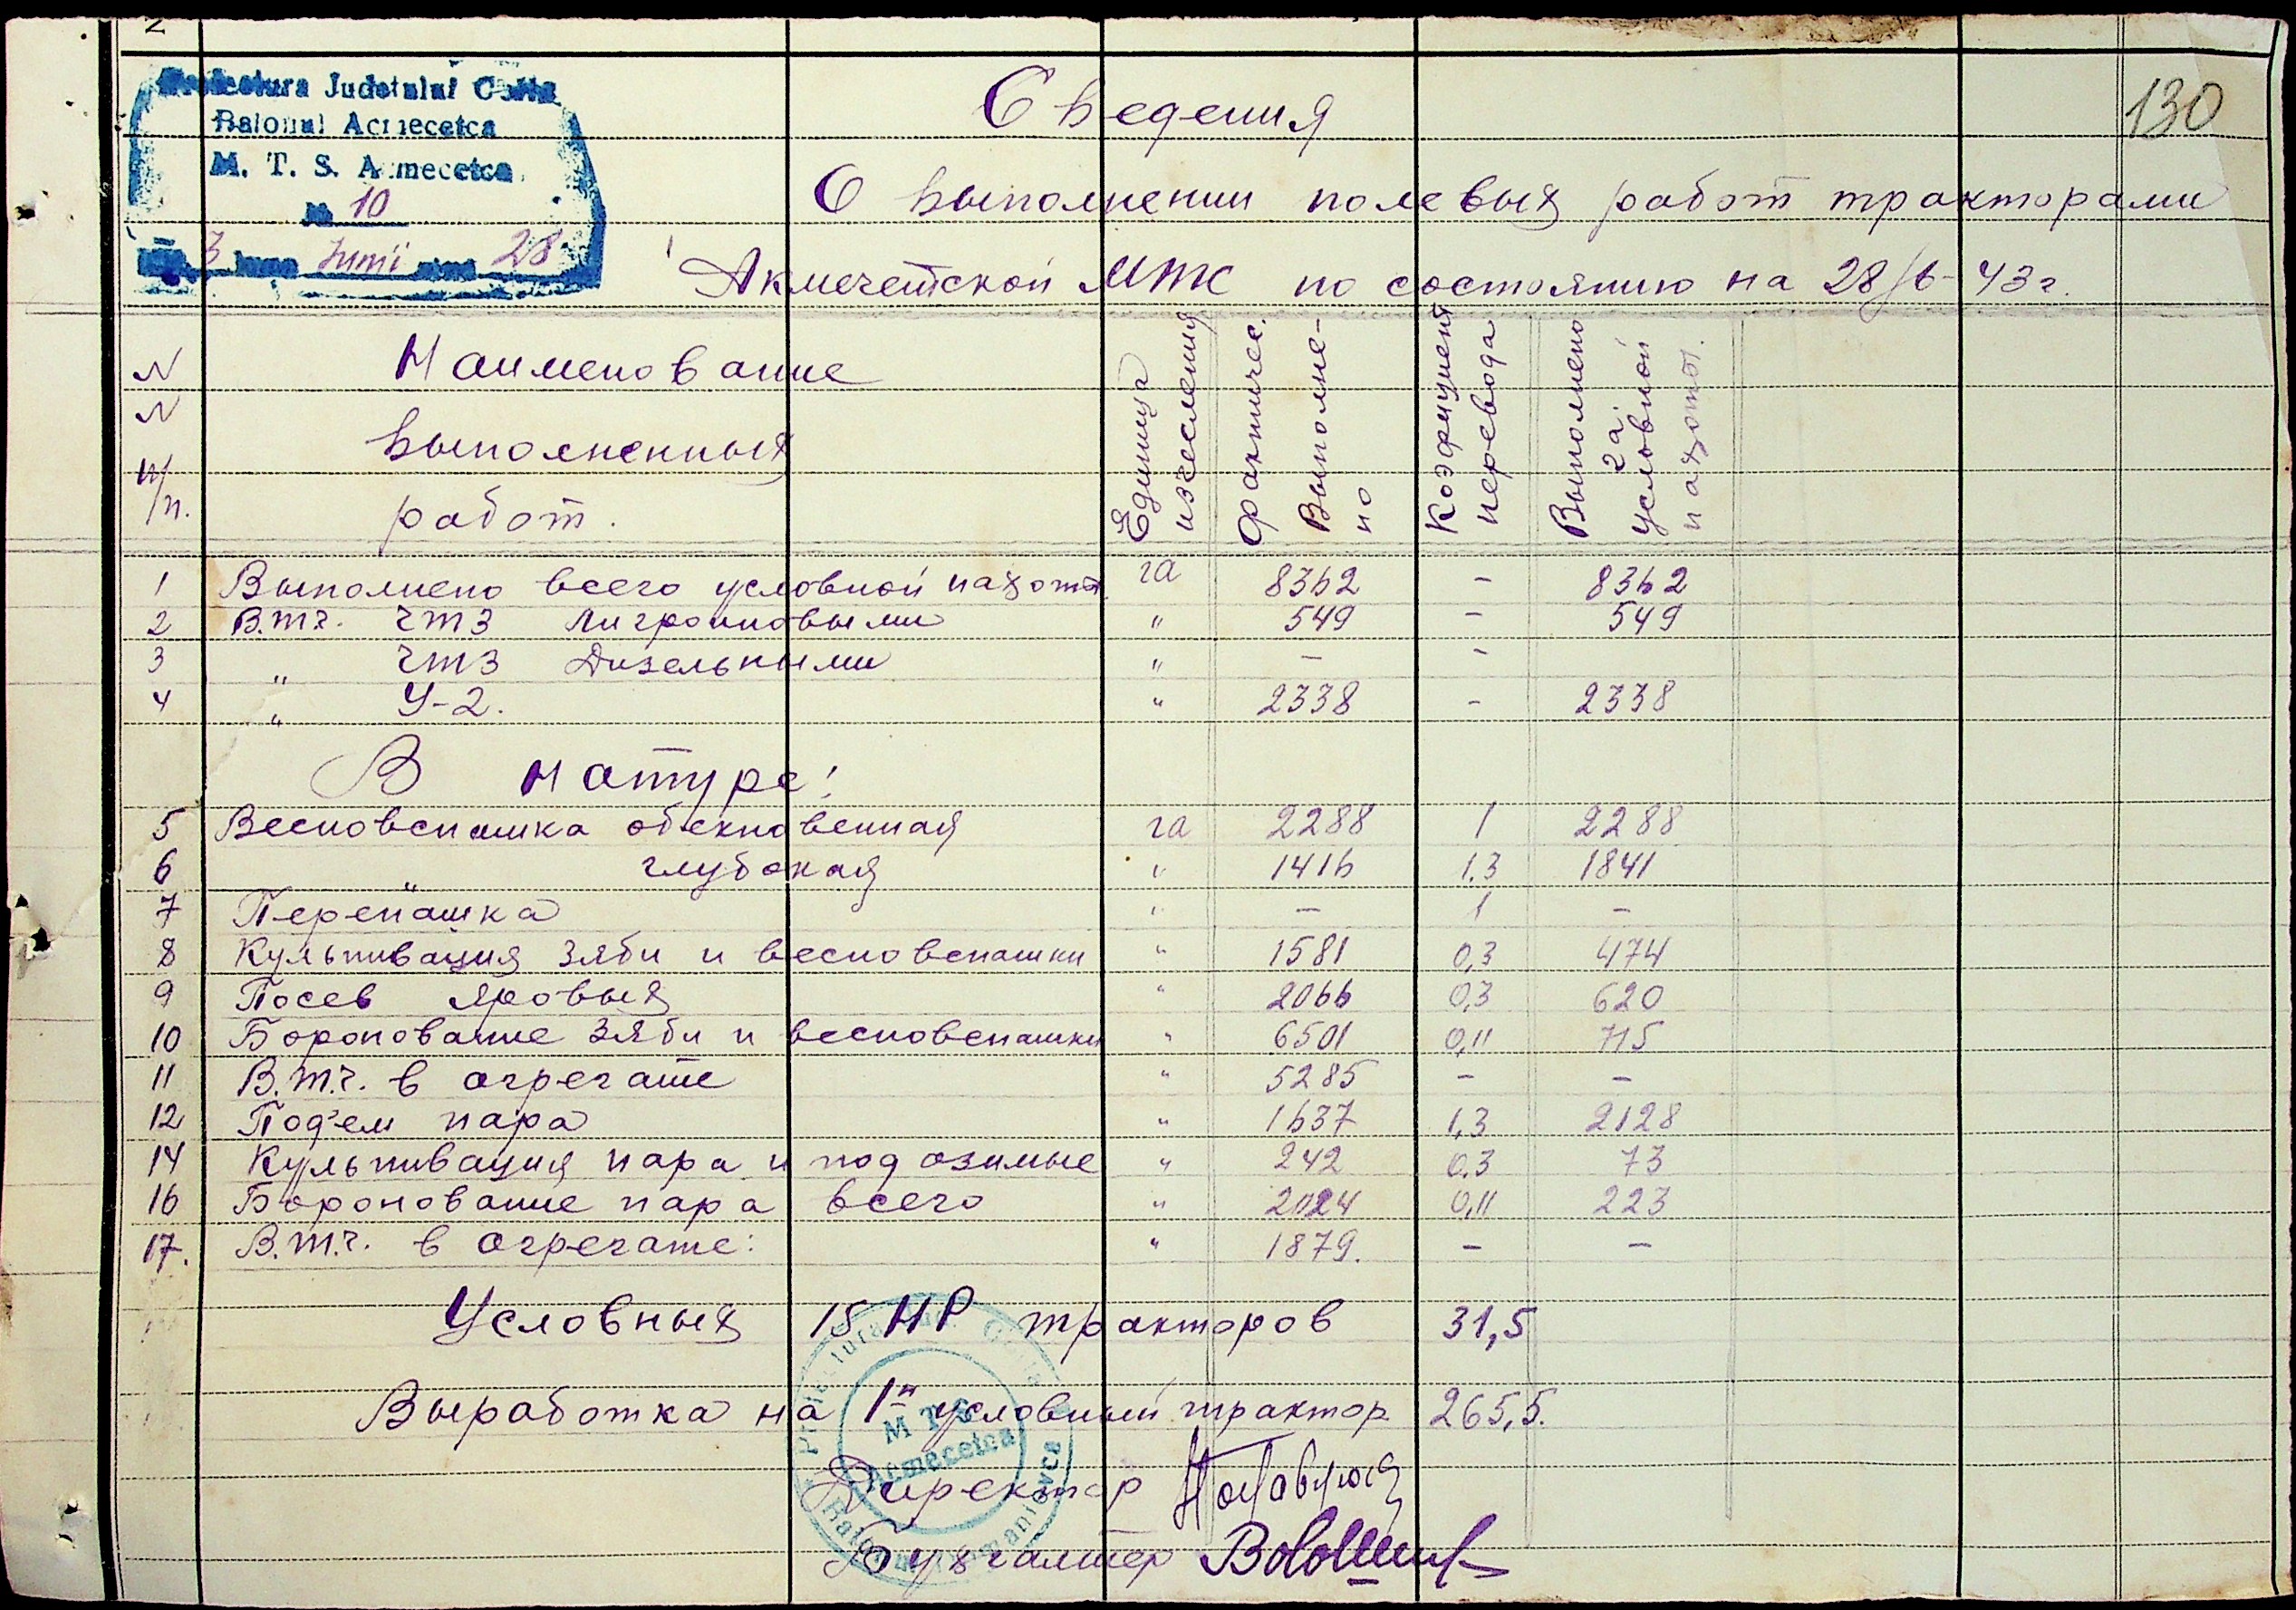 Prefectura Judetului Golta
Raionul Acmecetca
M. T. S. Acmecetca
№ 10
3 luna Iunii anul 28
130
Сведения
О выполнении полевых работ тракторами
Акмечетской МТС по состоянию на 28/6-43г.
N N п/п.
Наименование
выполненных
работ.
Единица изчесления
Фактичес. Выполне-но
Коэфициент перевода
Выполнено га. условной пахоты.
1 Выполнено всего условной пахоты га 8362 - 8362
2 В.т.ч. ЧТЗ Лигроиновыми " 549 - 549
3 " ЧТЗ Дизельными " - -
4 " У-2. " 2338 - 2338
В натуре:
5 Весновспашка обекновенная га 2288 1 2288
6 " глубокая " 1416 1.3 1841
7 Перепашка " - 1 -
8 Культивация зяби и весновспашки " 1581 0,3 474
9 Посев яровых " 2066 0,3 620
10 Боронование зяби и весновспашки " 6501 0,11 715
11 В.т.ч. в агрегате " 5285 - -
12 Под'ем пара " 1637 1,3 2128
14 Культивация пара и под озимые " 242 0.3 73
16 Боронование пара всего " 2024 0,11 223
17. В.т.ч. в агрегате: " 1879. - -
Условных 15 НР тракторов 31,5
Выработка на 1й условный трактор 265,5.
M T S
Acmecetca
Директор
Бухгалтер Волошин